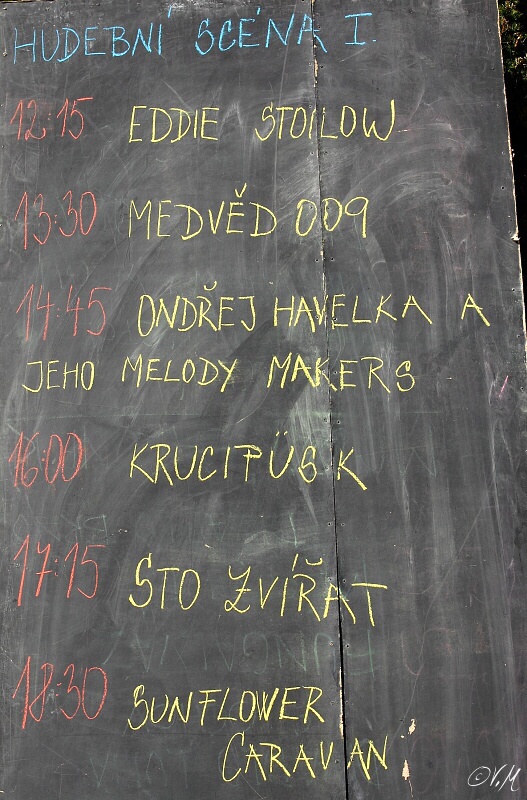 HUDEBNÍ SCÉNA I.
12:15 EDDIE STOILOW
13:30 MEDVĚD 009
14:45 ONDŘEJ HAVELKA A
JEHO MELODY MAKERS
16:00 KRUCIPÜSK
17:15 STO ZVÍŘAT
18:30 SUNFLOWER
CARAVAN
©V.M